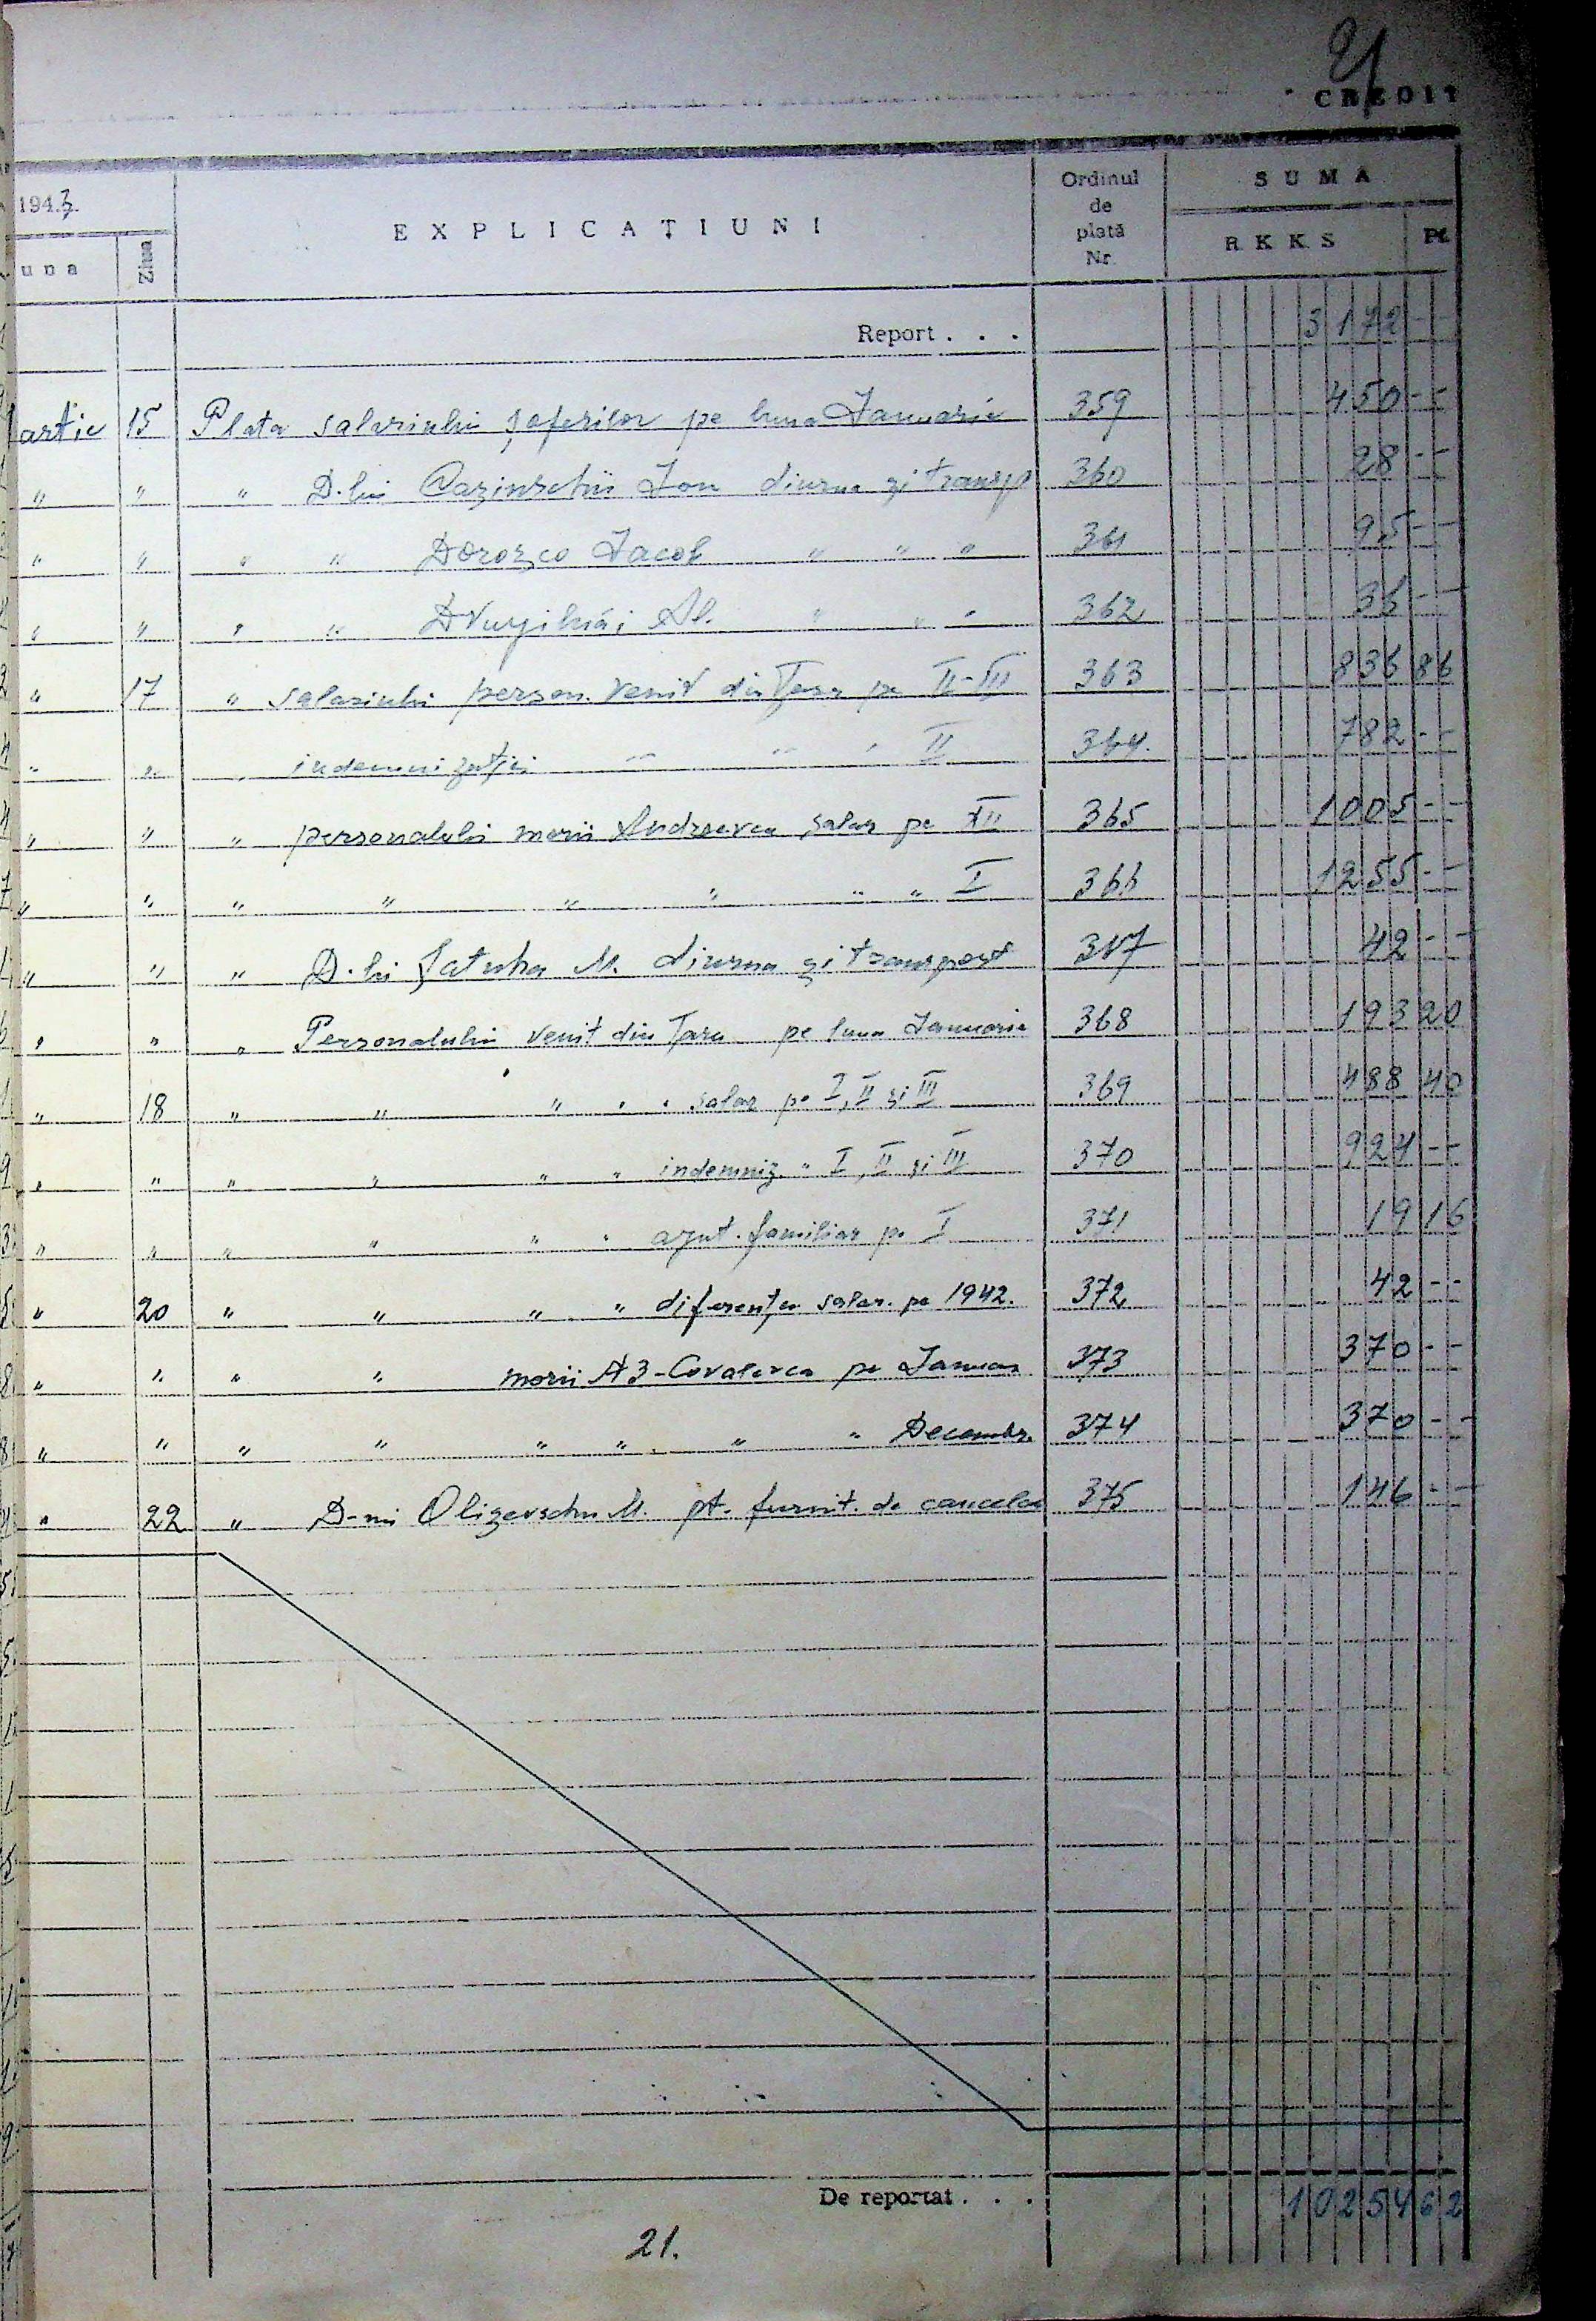 21
CREDIT
1943.
EXPLICAȚIUNI
Ordinul de plată Nr.
SUMA
una Ziua
RKKS Pf.
Report . . . 3172 --
artie 15 Plata salariului șoferilor pe luna Januarie 359 450 --
" " " D-lui Cazinschii Ion diurna și transp 360 28 --
" " " " Dorozco Jacob " " " 361 95 --
" " " " Al. " " " 362 36 --
" 17 " salariului person. venit din Țara pe II-III 363 836 86
" " " indemnizației — " " II 364. 782 --
" " " personalului morii Andreevca salar pe XII 365 1005 --
" " " " " " " " I 366 1255 --
" " " D-lui Șatuha M. diurna și transport 367 42 --
" " " Personalului venit din Țara pe luna Januarie 368 193 20
" 18 " " " " " salar pe I, II și III 369 488 40
" " " " " " indemniz. " I, II și III 370 924 --
" " " " " " ajut. familiar pe I 371 19 16
" 20 " " " " diferența salar. pe 1942. 372 42 --
" " " " morii A3-Covalevca pe Januar 373 370 --
" " " " " " " " Decembr. 374 370 --
" 22 " D-nii Olizevschi M. pt. furnit. de cancelar 375 146 --
De reportat . . . 10254 62
21.